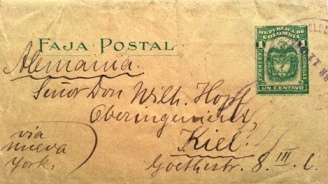 REPUBLICA DE
COLOMBIA
1 1
UN CENTAVO
FAJA POSTAL
Alemania.
Señor Don Wilh. Hopf
Oberingenieur
Kiel.
Goethestr. 8 III l.
via
nueva
York.